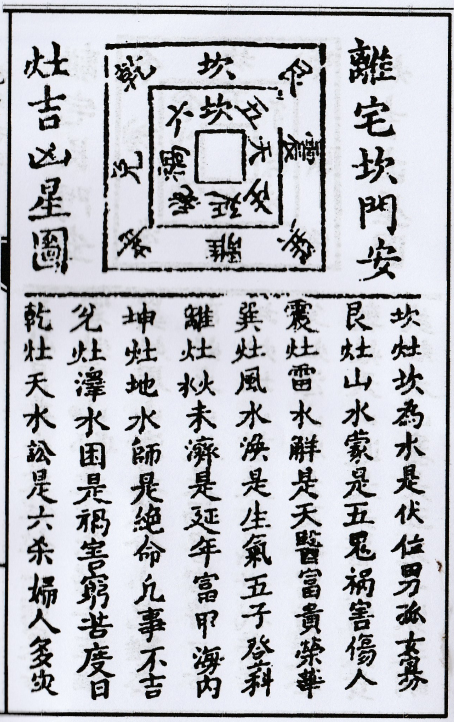 離宅坎門安
乾坎艮
兌震
坤離巽
六坎五
禍天
絕延生
灶吉凶星圖
坎灶坎為水是伏位男孤女寡
艮灶山水蒙是五鬼祸害傷人
震灶雷水解是天醫富貴榮華
巽灶風水渙是生氣五子登科
離灶火水未濟是延年富甲海内
坤灶地水師是絕命凡事不吉
兌灶澤水困是禍害窮苦度日
乾灶天水訟是六杀婦人多灾